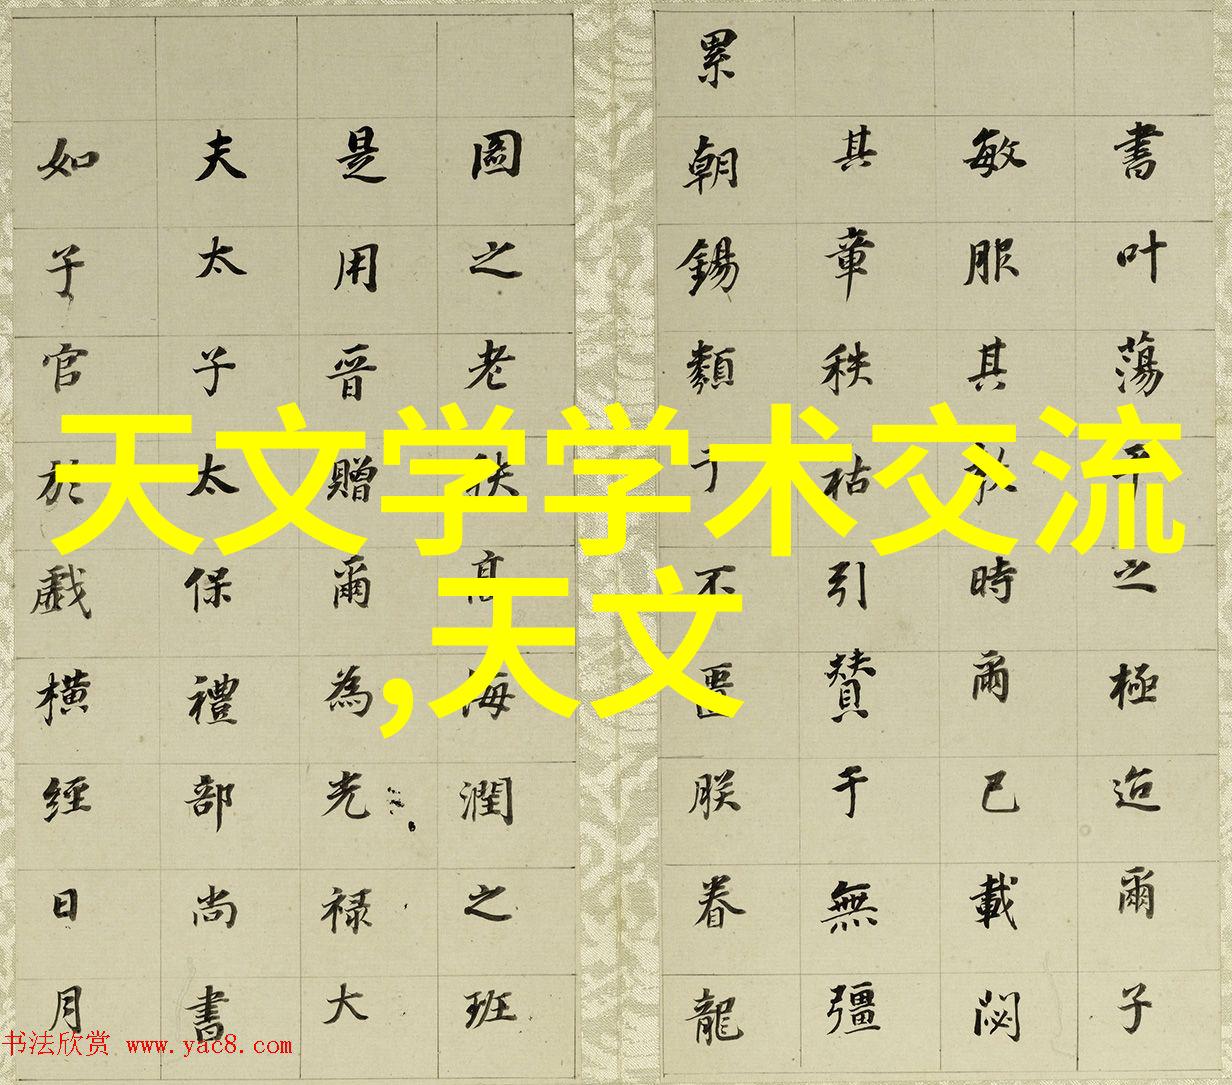 書叶蕩平之極迨爾子
敏服其於時爾已載閟
其章秩祜引贊于無彊
累朝錫類于不匱朕眷龍
圖之老秩高海潤之班
是用晉贈爾為光禄大
夫太子太保禮部尚書
如子官於戲橫經日月
天文学学术交流
,天文
书法欣赏 www.yac8.com